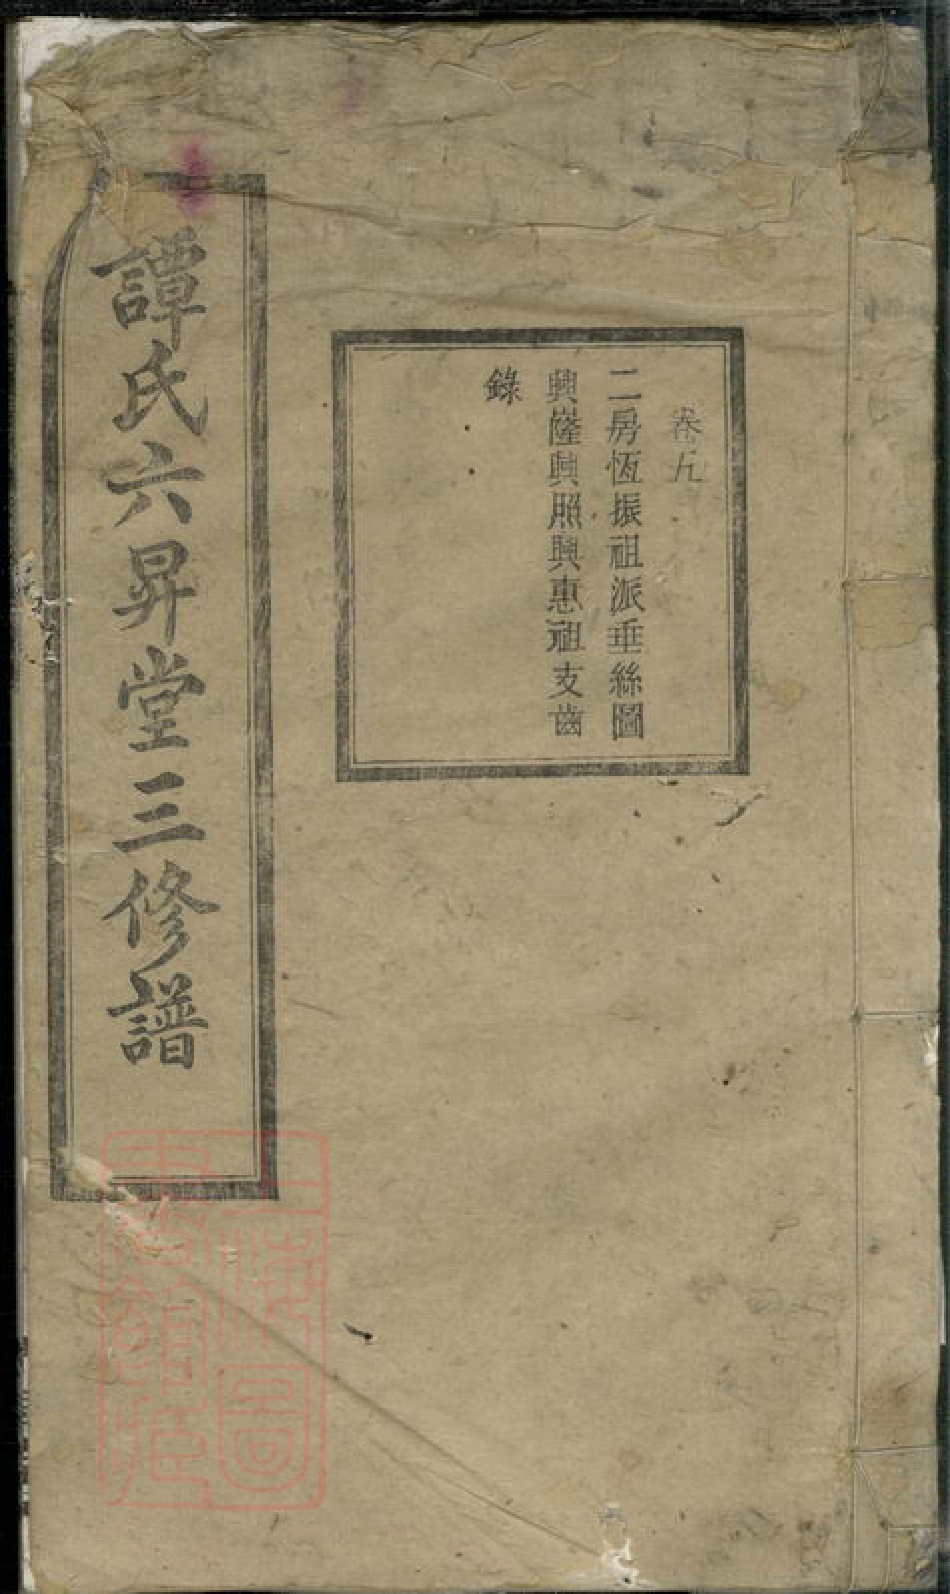 卷九
二房恆振祖派垂絲圖
興隆興照興惠祖支齒
錄
譚氏六昇堂三修譜
上海圖
書館藏